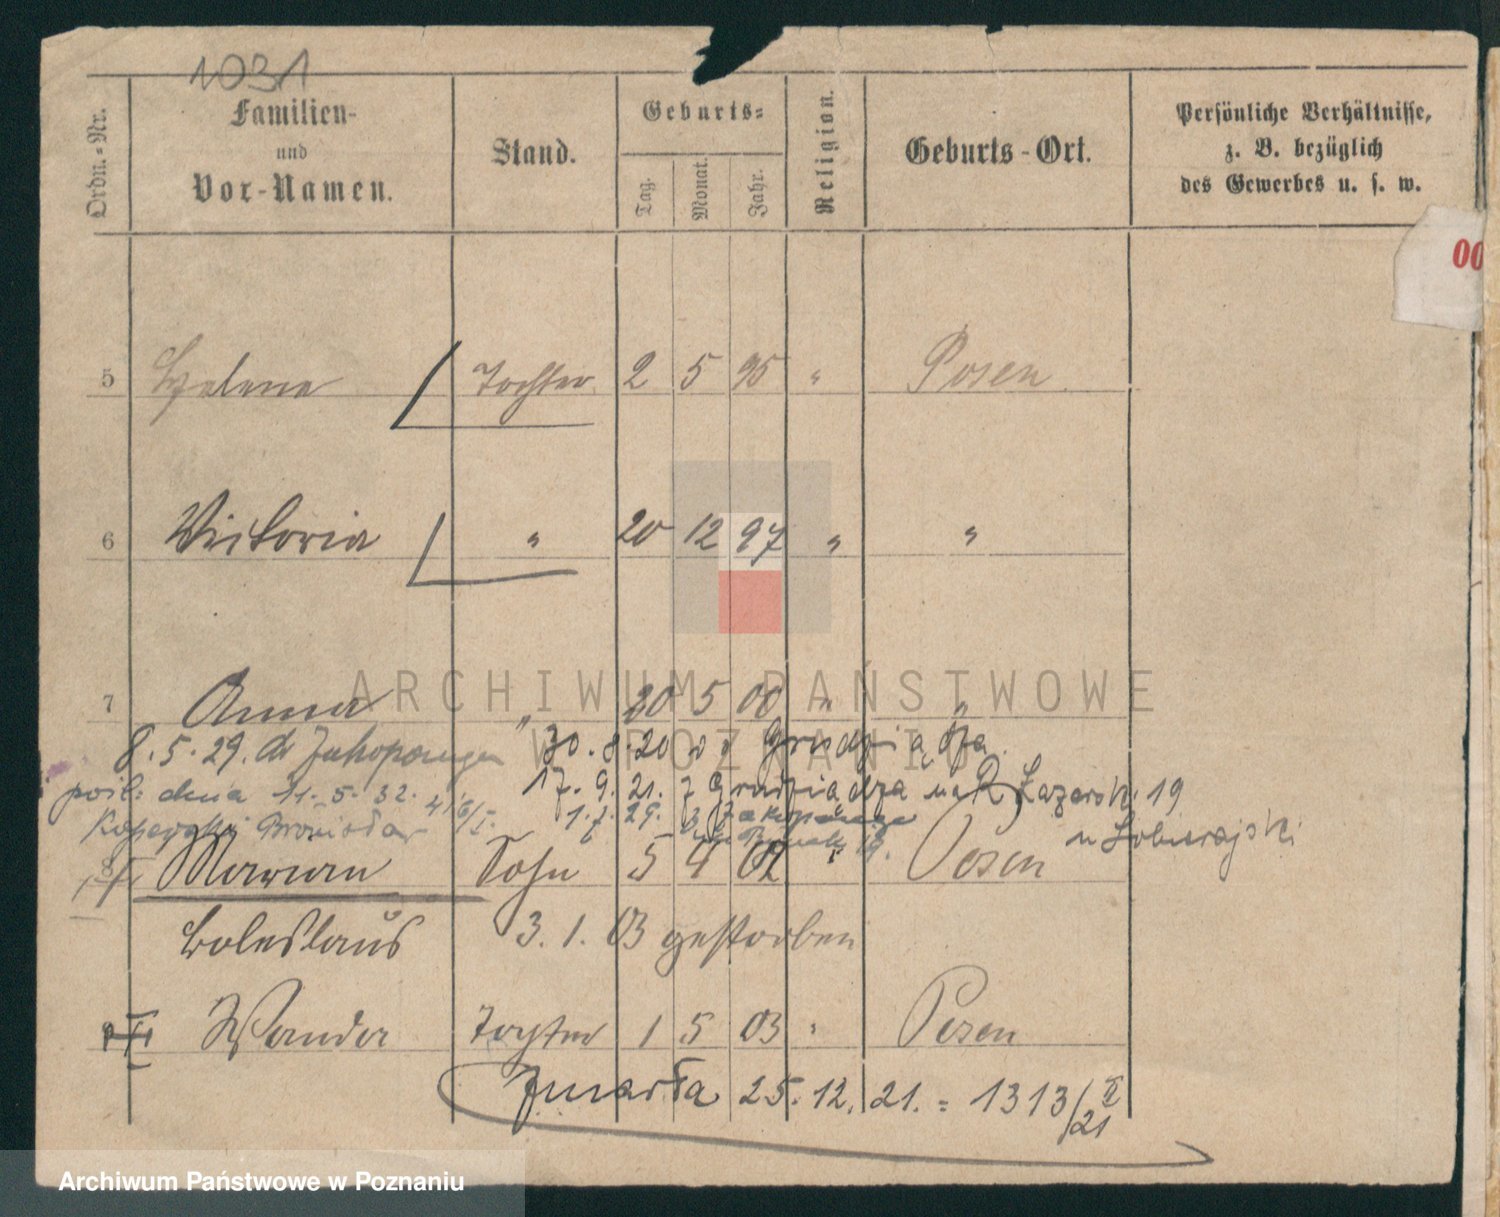 1031
Ordn.-Nr.
Familien-
und
Vor-Namen.
Stand.
Geburts-
Tag.
Monat.
Jahr.
Religion.
Geburts-Ort.
Persönliche Verhältnisse,
z. B. bezüglich
des Gewerbes u. s. w.
00
5 Helene Tochter 2 5 95 " Posen
6 Victoria " 20 12 97 " "
ARCHIWUM PAŃSTWOWE
W POZNANIU
7 Anna " 20 5 00 " "
8.5.29. do Zakopanego 30.8.20 do Grudziądza
17.9.21. z Grudziądza na R. Łazarski 19
pośl. dnia 11.5.32. 1.7.29. z Zakopanego
u Sobierajski
Bronisław
8 Marian Sohn 5 4 02 " Posen
Boleslaus 3.1.03 gestorben
Wanda Tochter 1 5 03 " Posen
Zmarła 25.12.21. = 1313/II 21
Archiwum Państwowe w Poznaniu